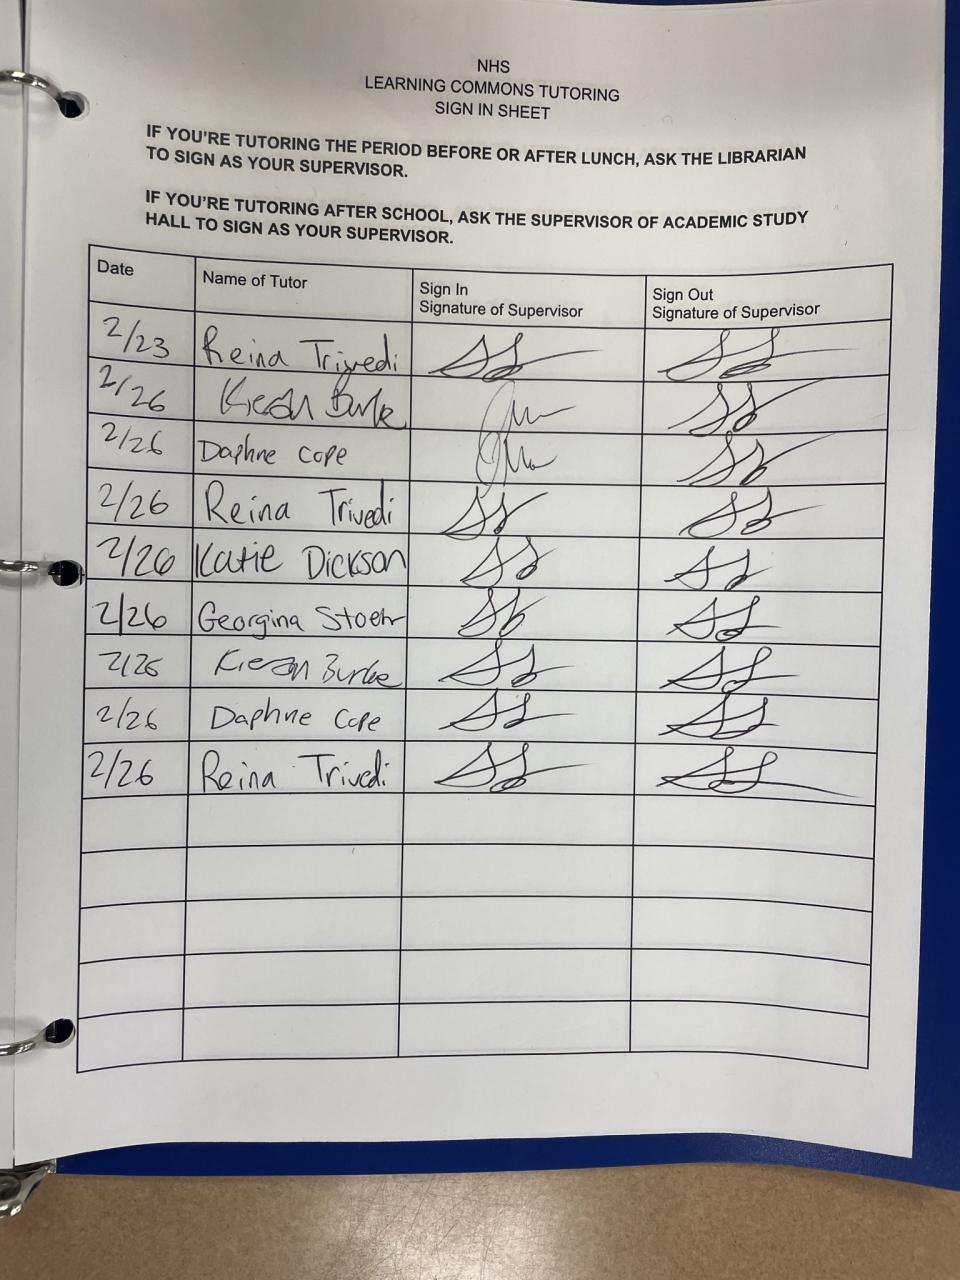 NHS
LEARNING COMMONS TUTORING
SIGN IN SHEET
IF YOU'RE TUTORING THE PERIOD BEFORE OR AFTER LUNCH, ASK THE LIBRARIAN
TO SIGN AS YOUR SUPERVISOR.
IF YOU'RE TUTORING AFTER SCHOOL, ASK THE SUPERVISOR OF ACADEMIC STUDY
HALL TO SIGN AS YOUR SUPERVISOR.
Date Name of Tutor Sign In Sign Out
Signature of Supervisor Signature of Supervisor
2/23 Reina Trivedi
2/26 Kieran Burke
2/26 Daphne Cope
2/26 Reina Trivedi
2/26 Katie Dickson
2/26 Georgina Stoehr
2/26 Kieran Burke
2/26 Daphne Cope
2/26 Reina Trivedi